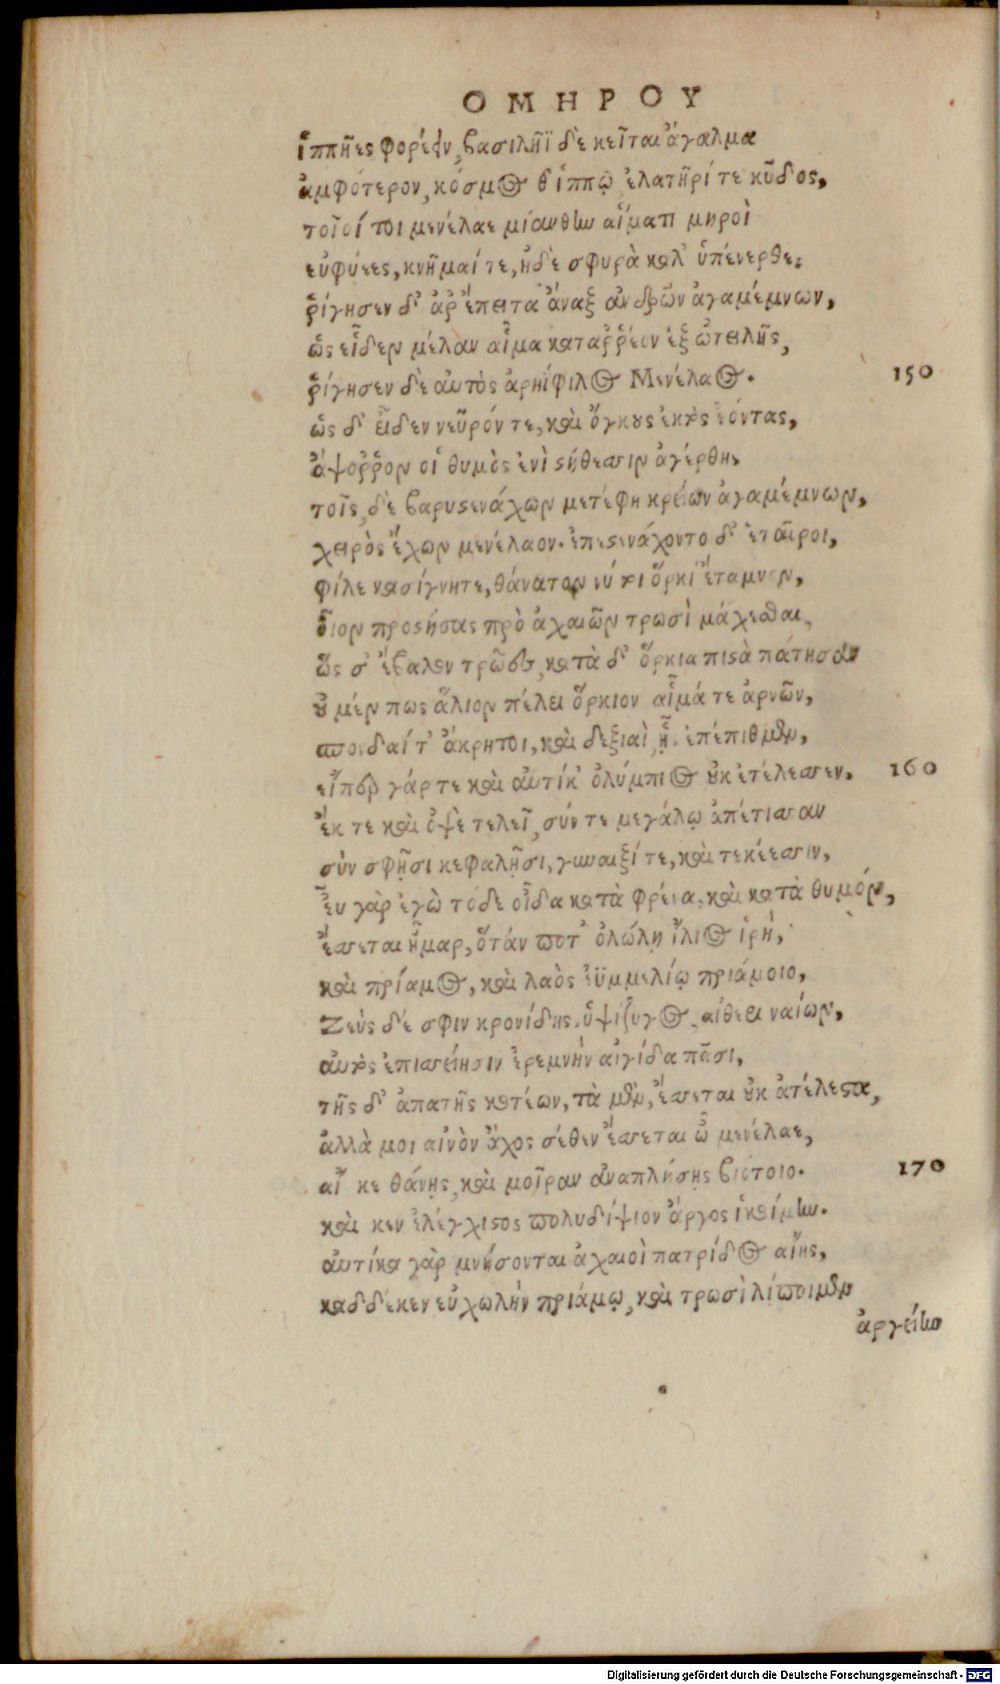 ΟΜΗΡΟΥ
ἱππῆες φορέειν, βασιλῆϊ δὲ κεῖται ἄγαλμα
ἀμφότερον, κόσμος θ' ἵππῳ, ἐλατῆρί τε κῦδος,
τοῖοί τοι μενέλαε μίανθην αἵματι μηροὶ
εὐφύεες, κνῆμαί τε, ἠδὲ σφυρὰ καλ' ὑπένερθε:
ῥίγησεν δ' ἀρ ἔπειτα ἄναξ ἀνδρῶν ἀγαμέμνων,
ὡς εἶδεν μέλαν αἷμα καταῤῥέον ἐξ ὠτειλῆς,
ῥίγησεν δὲ αὐτὸς ἀρηΐφιλος Μενέλαος. 150
ὡς δ' εἶδεν νεῦρόν τε, καὶ ὄγκους ἐκτὸς ἐόντας,
ἄψοῤῥον οἱ θυμὸς ἐνὶ στήθεσσιν ἀγέρθη,
τοῖς δὲ βαρυστενάχων μετέφη κρείων ἀγαμέμνων,
χειρὸς ἔχων μενέλαον. ἐπεστενάχοντο δ' ἑταῖροι,
φίλε κασίγνητε, θάνατον νύ τοι ὅρκι' ἔταμνον,
οἶον προστήσας πρὸ ἀχαιῶν τρωσὶ μάχεσθαι,
ὥς σ' ἔβαλον τρῶες, κατὰ δ' ὅρκια πιστὰ πάτησαν
οὐ μέν πως ἅλιον πέλει ὅρκιον αἷμά τε ἀρνῶν,
σπονδαί τ' ἄκρητοι, καὶ δεξιαὶ, ᾗς ἐπέπιθμεν,
εἴπερ γάρ τε καὶ αὐτίκ' ὀλύμπιος οὐκ ἐτέλεσσεν. 160
ἔκ τε καὶ ὀψὲ τελεῖ, σύν τε μεγάλῳ ἀπέτισσαν
σὺν σφῇσι κεφαλῇσι, γυναιξί τε, καὶ τεκέεσσιν,
εὖ γὰρ ἐγὼ τόδε οἶδα κατὰ φρένα, καὶ κατὰ θυμόν,
ἔσσεται ἦμαρ, ὅτάν ποτ' ὀλώλῃ ἴλιος ἱρή,
καὶ πρίαμος, καὶ λαὸς ἐϋμμελίῳ πριάμοιο,
Ζεὺς δέ σφιν κρονίδης, ὑψίζυγος, αἰθέρι ναίων,
αὐτὸς ἐπισσείησιν ἐρεμνὴν αἰγίδα πᾶσι,
τῆς δ' ἀπατῆς κοτέων, τὰ μὲν, ἔσσεται οὐκ ἀτέλεστα,
ἀλλὰ μοι αἰνὸν ἄχος σέθεν ἔσσεται ὦ μενέλαε,
αἴ κε θάνῃς, καὶ μοῖραν ἀναπλήσῃς βιότοιο. 170
καὶ κεν ἐλέγχιστος πολυδίψιον ἄργος ἱκοίμην.
αὐτίκα γὰρ μνήσονται ἀχαιοὶ πατρίδος αἴης,
καδδέ κεν εὐχωλὴν πριάμῳ, καὶ τρωσὶ λίποιμεν
ἀργείην
Digitalisierung gefördert durch die Deutsche Forschungsgemeinschaft - DFG